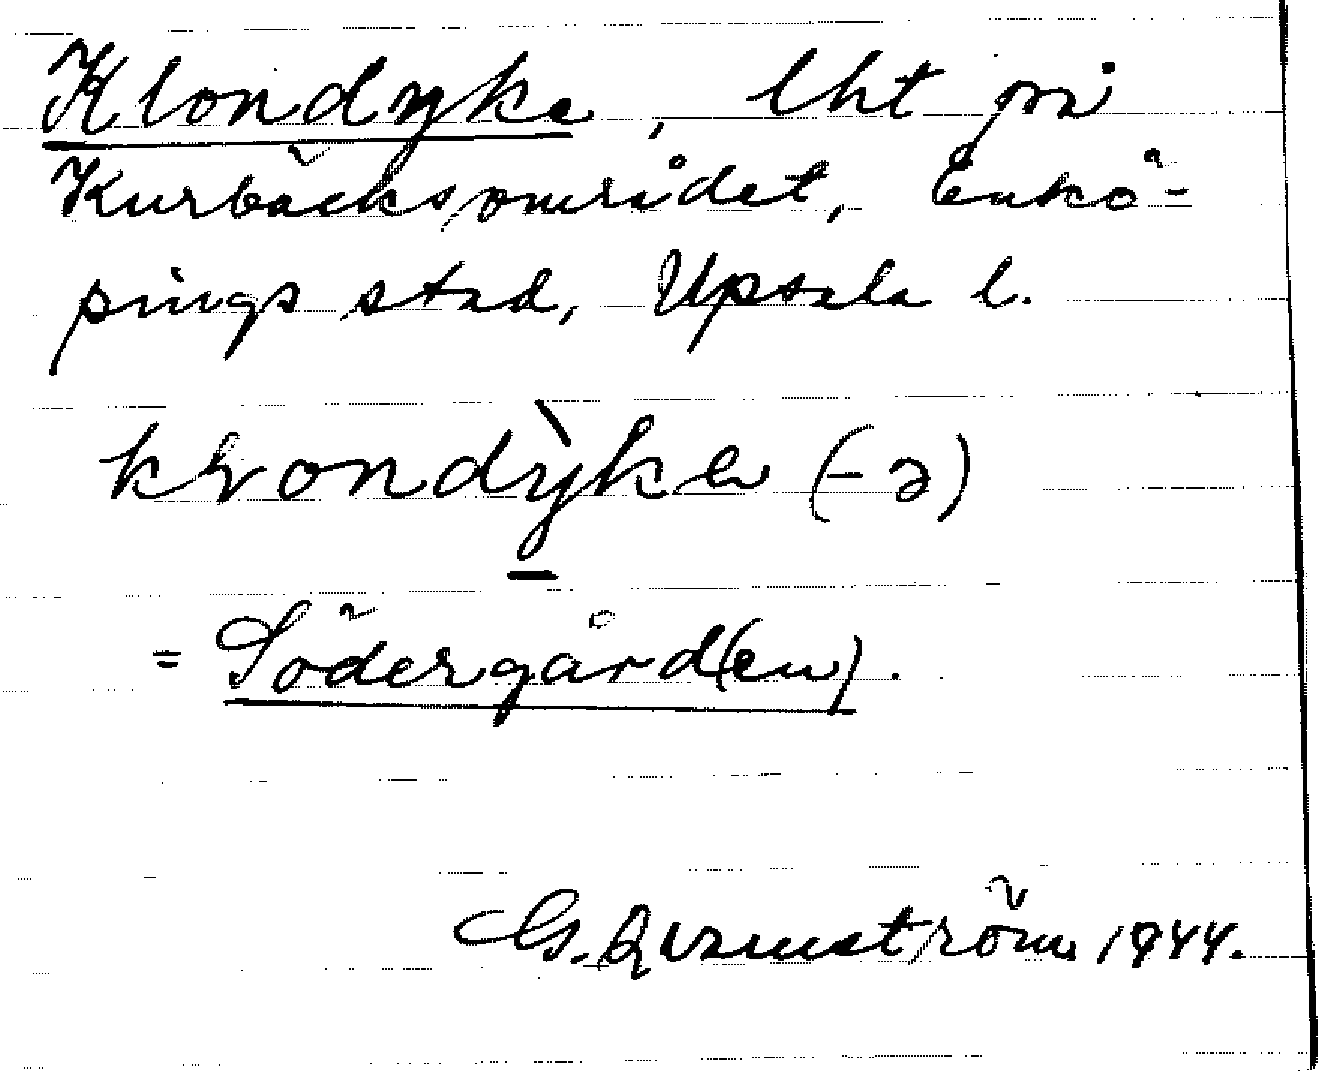 Klondyke, lht på
Kurbäcksområdet, Enkö-
pings stad, Upsala l.
krondỳke (-ə)
= Södergård(en).
G. Qvarnström 1944.